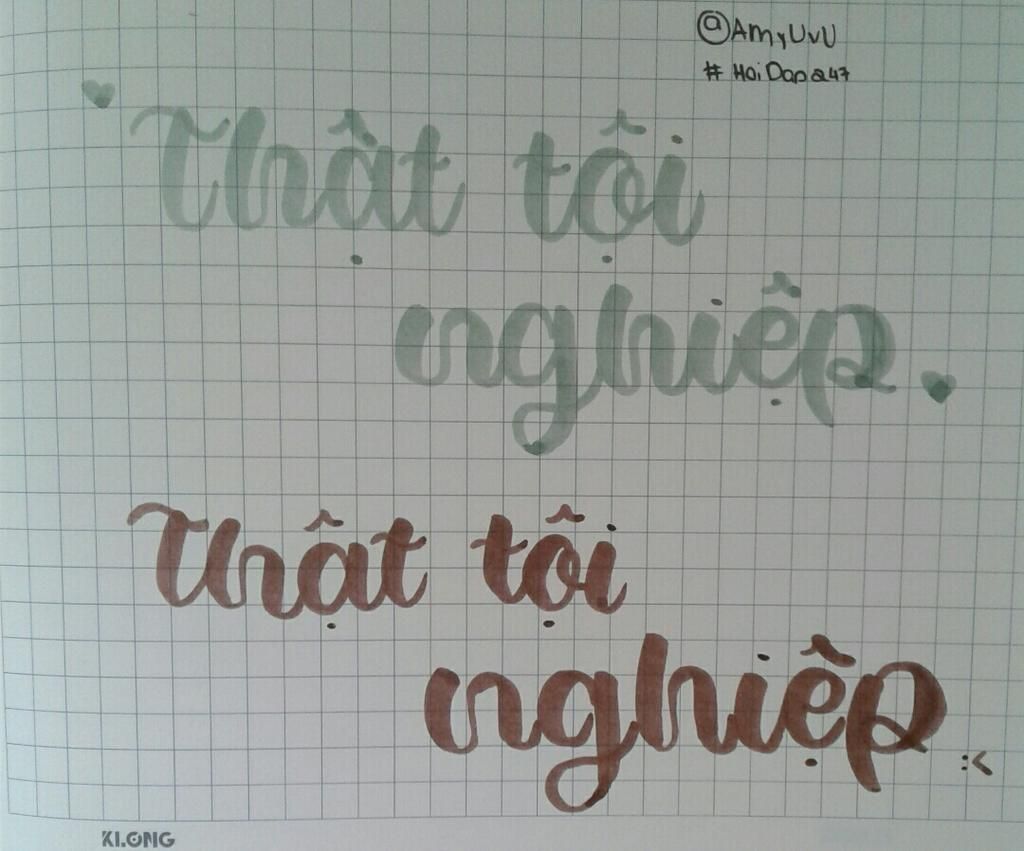 @AmyUvU
# HoiDap247
Thật tội
nghiệp
Thật tội
nghiệp :<
KLONG